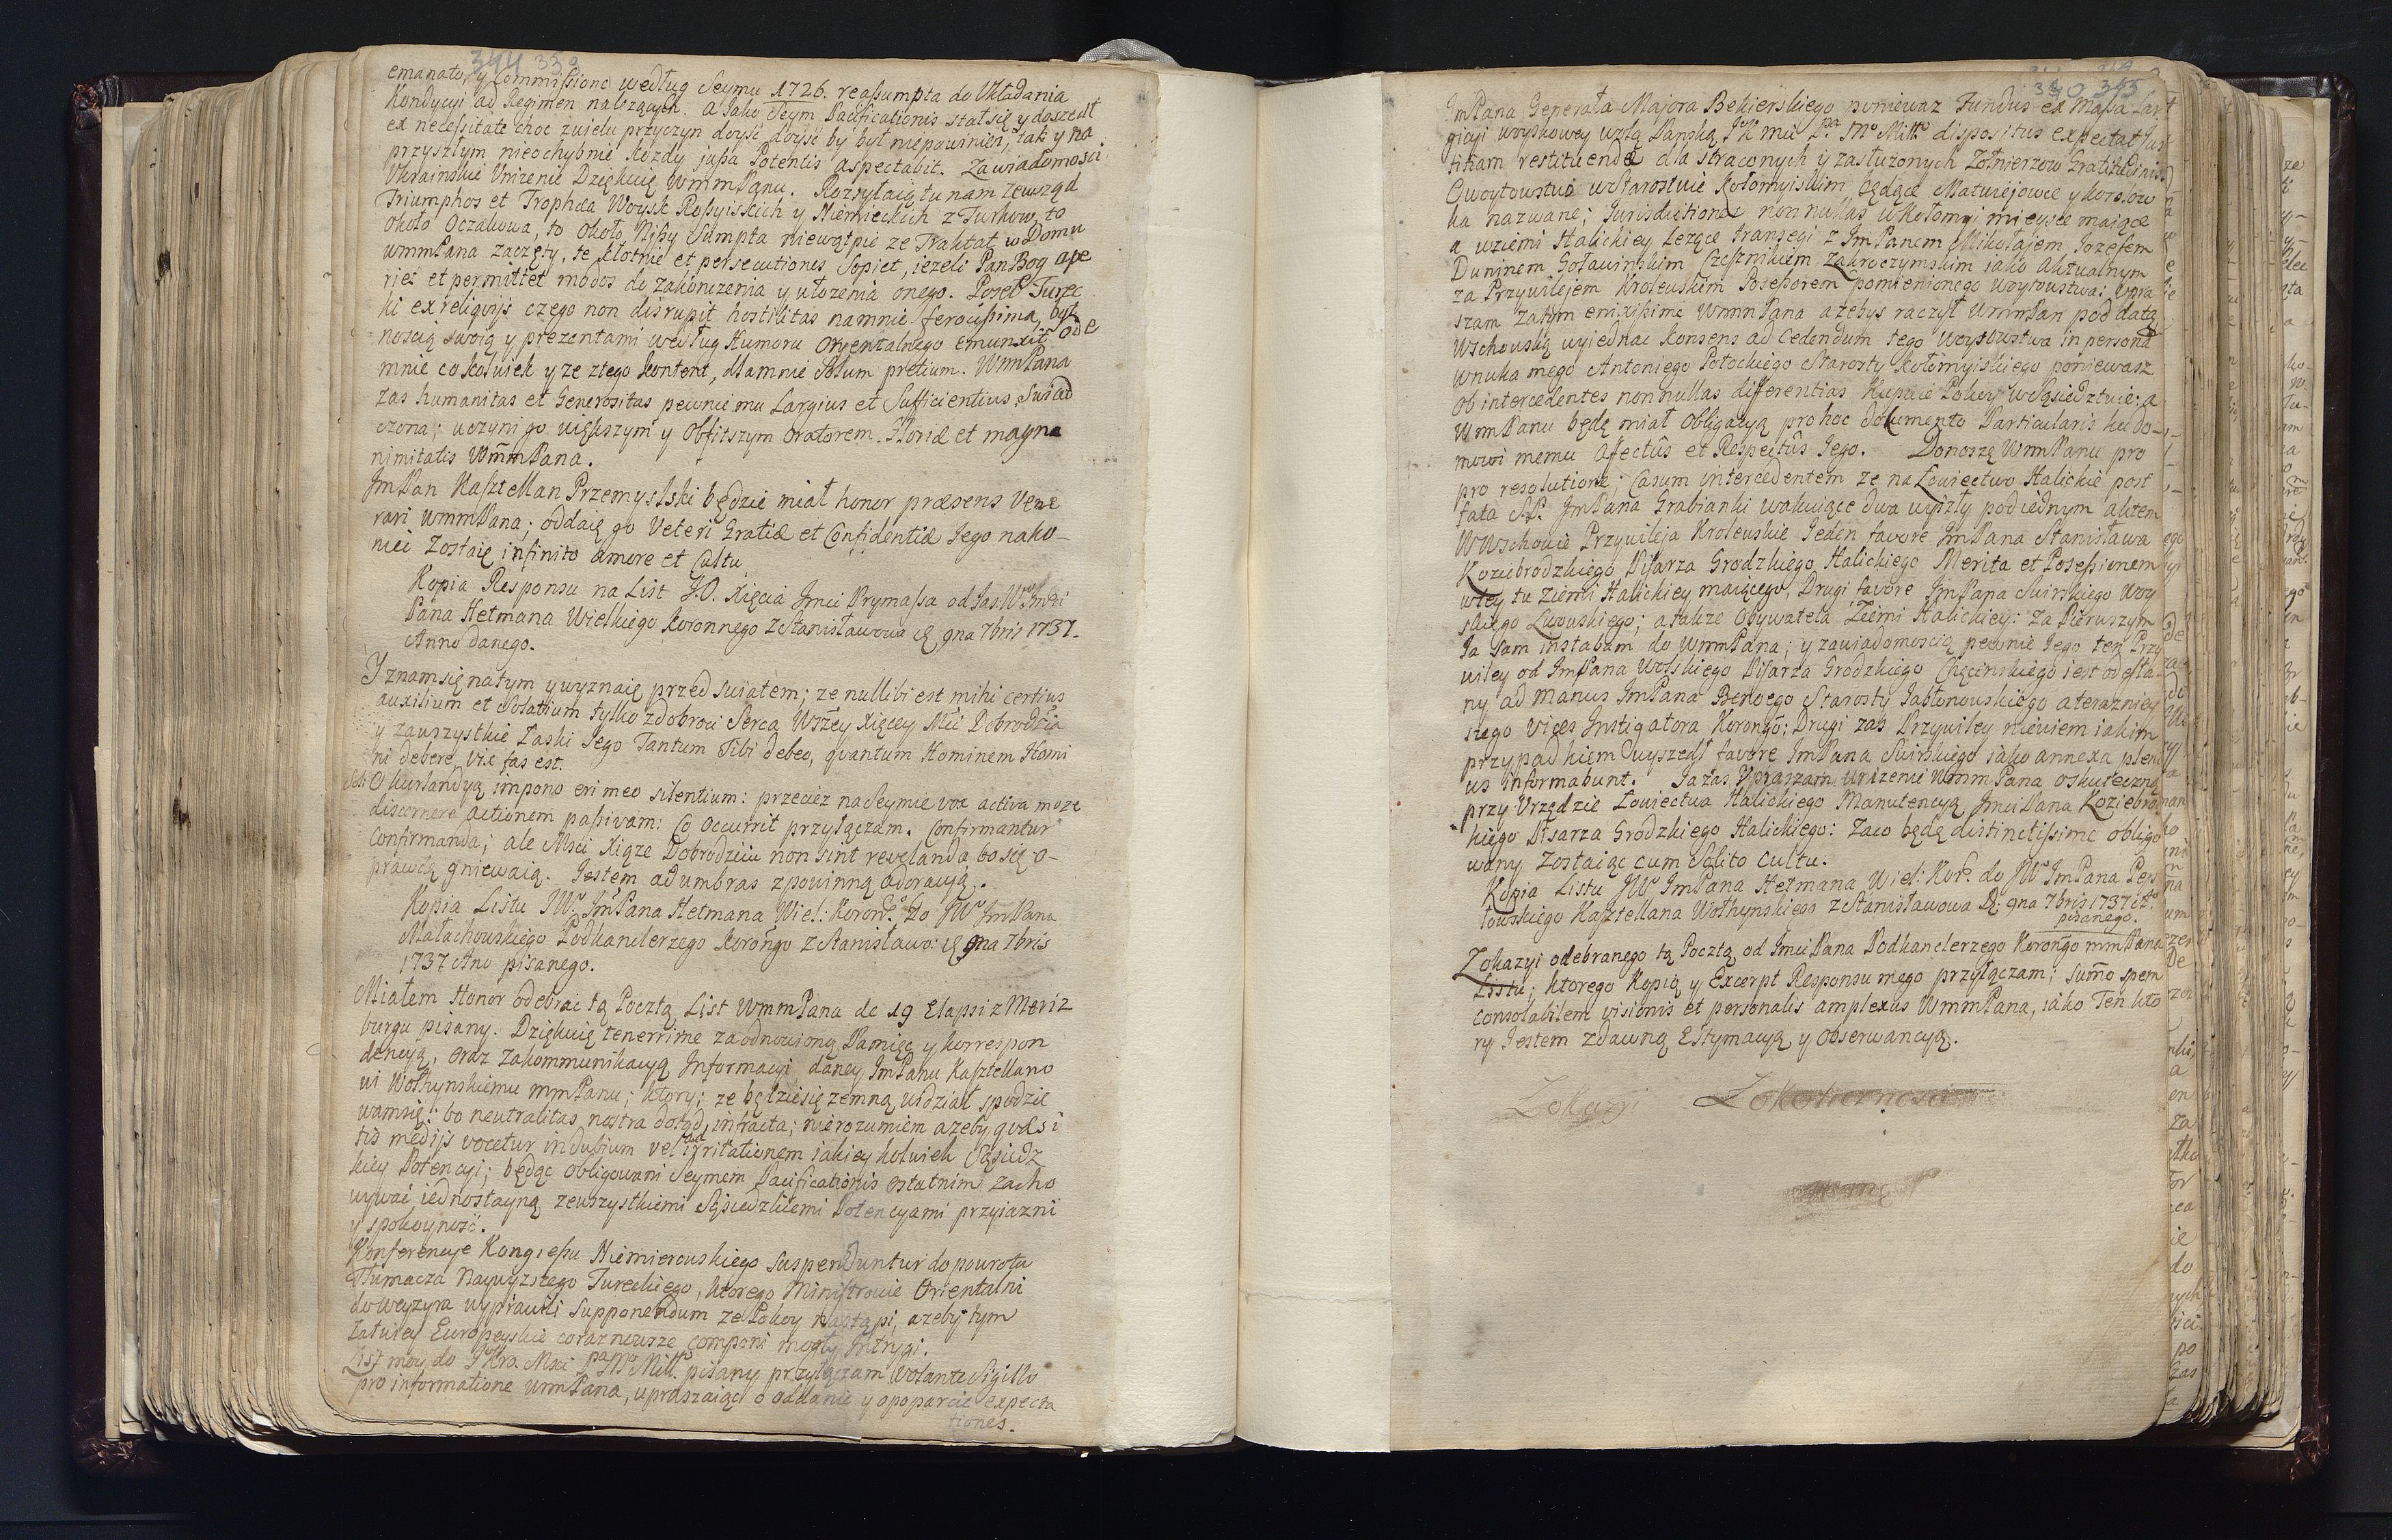 344 330
emanato, y Commissione według Seymu 1726. reassumpta do Układania
Kondycyi ad Regimen nalezących. a Jako Seym Pacificationis stał się y doszedł
ex necessitate choc zwielu przyczyn doyść by był niepowinien, tak y na
przyszłym nieochybnie kozdy jussa Potentis aspectabit. Zawiadomosci
Ukrainskie Unizenie Dziękuię WmmPanu. Rozsyłaią tu nam zewząd
Triumphos et Trophæa Woysk Rossyiskich y Niemieckich z Turkow, to
około Oczakowa, to około Nissy sumpta niewątpię ze Traktat w Domu
WmmPana zaczęty, te kłotnie et persecutiones sopiet, iezeli Pan Bog ape
riet et permittet modos do zakonczenia y ułozenia onego. Poseł Turec
ki ex religijs czego non disrupit hostilitas namnie ferocissima, byt
noscią swoią y prezentami według Humoru Oryentalnego emunxit ode
mnie cokolwiek y ze złego kontent, dla mnie solum pretium. WmmPana
zas humanitas et Generositas pewnie mu Largius et Sufficientius swiad
czona; uczyni go większym y Obfitszym Oratorem Gloriæ et magna
nimitatis WmmPana.
JmPan Kasztellan Przemyslski będzie miał honor præsens Vene
rari WmmPana; oddaię go Veteri Gratiæ et Confidentiæ Jego nako-
niec Zostaię infinito amore et Cultu.
Kopia Responsu na List J.O. Xięcia Jmci Prymassa od Jas: Wgo Jmci
Pana Hetmana Wielkiego Koronnego z Stanisławowa D 9na 7bris 1737.
Anno danego.
Y znam się na tym y wyznaię przed swiatem; ze nullibi est mihi certius
auxilium et Solatium tylko z dobroci Serca Wszey Xięcey Mci Dobrodzia
y zawszystkie Łaski Jego Tantum Tibi debeo, quantum Hominem Homi
ni debere, vix fas est.
O Kurlandyą impono ori meo silentium: przeciez na Seymie vox activa moze
discernere actionem passivam: Co occurrit przyłączam. Confirmantur
Confirmanda; ale Msci Xiąze Dobrodzieiu non sunt revelanda, bo się o-
prawdę gniewaią. Jestem ad umbras z powinną adoracyą.
Kopia Listu JWo JmPana Hetmana Wiel: Koronno do JWo JmPana
Małachowskiego Podkanclerzego Koronngo z Stanisławo: D 9na 7bris
1737 Ano pisanego.
Miałem Honor odebrać tą Pocztą List WmmPana de 19 Elapsi z Moriz
burgu pisany. Dziękuię tenerrime za odnowioną Pamięć y korrespon
dencyą, oraz Zakommunikacyą Informacyi daney JmPanu Kasztellano
wi Wołhynskiemu mmPanu; ktory; ze będzie się zemną widział spodzie
wam się: bo neutralitas nostra dotąd intacta; nierozumiem azeby quæsi
tis medijs vocetur in dubium vel ad irritationem iakiey kolwiek Sąsiedz
kiey Potencyi; będąc Obligowani Seymem Pacificationis ostatnim zacho
wywać iednostayną zewszystkiemi Sąsiedzkiemi Potencyami przyiazni
y spokoyność.
Konferencye Kongressu Niemierowskiego suspenduntur do powrotu
Tłumacza Naywyzszego Tureckiego, ktorego Ministrowie Orientalni
do Wezyra wyprawili Supponendum ze Pokoy nastąpi, azeby tym
łatwiey Europeyskie coraz nowsze componi mogły Intrygi.
List moy do JKro. Msci Pa Mo Miłło pisany przyłączam Volante Sigillo
pro informatione WmmPana, upraszaiąc o oddanie y o poparcie expecta
tiones.
340 315
JmPana Generała Majora Bekierskiego poniewaz Fundus ex Massa Lar
gicyi woyskowey wolą Panską JKmci Pa Mo Miłło dispositus expectat Jus
titiam restituendæ dla straconych y zasłuzonych Zołnierzow Gratitudinis.
Gwoytowstwo w Starostwie Kołomyiskim będące Matuiejowce y korolow
ka nazwane; Jurisdictiones nonnullas w Kołomyi mieysce maiące
a w ziemi Halickiey lezące transegi z JmPanem Mikołajem Jozefem
Duninem Gołauinskim Czesznikiem Zakroczymskim iako Aktualnym
za Przywilejem Krolewskim Posessorem pomienionego woytowstwa: Upra
szam zatym enixissime WmmPana azebys raczył WmmPan pod datą
Wschowską wyiednac Konsens ad Cedendum tego Woytowstwa in persona
Wnuka mego Antoniego Potockiego Starosty Kołomyiskiego poniewasz
Ob intercedentes nonnullas differentias Kupuie Pokoy w Sąsiedztwie: a
WmmPanu będę miał Obligacyą pro hoc dokumento Particularis ku do-
mowi memu Affectûs et Respectûs Jego. Donoszę WmmPanu pro
pro resolutione; Casum intercedentem ze na Łowiectwo Halickie post
fata S.P. JmPana Grabianki wakuiące dwa wyszły pod iednym aktem
W Wschowie Przywileja Krolewskie Jeden favore JmPana Stanisława
Kozubrodzkiego Pisarza Grodzkiego Halickiego Merita et Posessionem
w tey tu Ziemi Halickiey maiącego, Drugi favore JmPana Swirskiego Woy
skiego Lwowskiego; a takze Obywatela Ziemi Halickiey: Za Pierwszym
Ja sam instabam do WmmPana; y zawiadomoscią pewnie Jego ten Przy
wiley od JmPana Wolskiego Pisarza Grodzkiego Chęcinskiego iest odesła
ny ad manus JmPana Benoego Starosty Jabłonowskiego a teraznieÿ
szego Vices Instigatora Koronngo: Drugi zas Przywiley niewiem iakim
przypadkiem wyszedł favore JmPana Swirskiego iako annexa pleni
us informabunt. Ja zas Upraszam Unizenie WmmPana o skuteczną
przy Urzędzie Łowiectwa Halickiego Manutencyą Jmci Pana Koziebro
kiego Pisarza Grodzkiego Halickiego: Zaco będę distinctissime obligo
wany Zostaiąc cum Solito Cultu.
Kopia Listu JWo JmPana Hetmana Wiel: Kor. do JWo JmPana Pes
towskiego Kasztellana Wołhynskiego z Stanisławowa D: 9na 7bris 1737 Ao
pisanego.
Zokazyi odebranego tą Pocztą od Jmci Pana Podkanclerzego Koronngo mmPana
Listu; ktorego Kopią y Excerpt Responsu mego przyłączam; sumo spem
consolabilem visionis et personalis amplexus WmmPana, iako Ten kto
ry Jestem zdawną Estymacyą y Obserwancyą.
Zokazyi